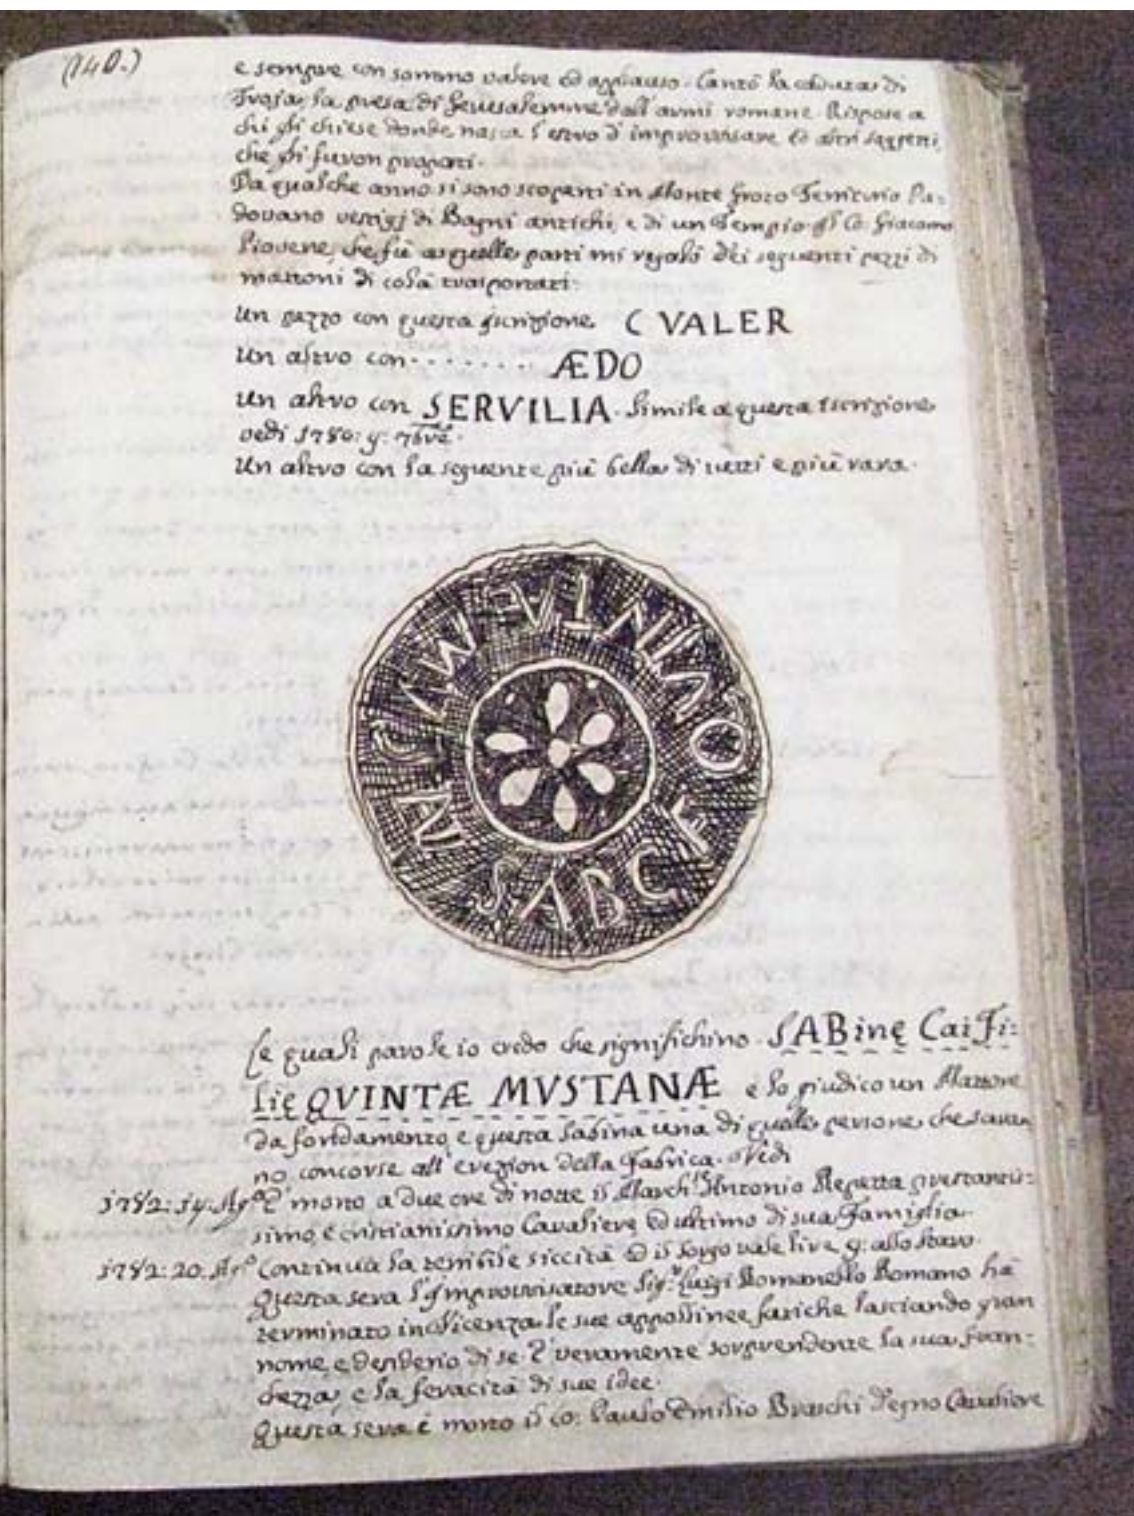 (140.)
e sempre con sommo valore ed applauso. Cantò la caduta di
Troja, la presa di Gerusalemme dall'armi romane. Rispose a
chi gli chiese donde nasca l'estro d'improvvisare ed altri soggetti,
che gli furon proposti.
Da qualche anno si sono scoperti in Monte Groto Territorio Pa=
dovano vestigj di Bagni antichi, e di un Tempio. Il Co: Giacomo
Piovene, che fù a quelle parti mi regalò dei seguenti pezzi di
mattoni di colà trasportati:
Un pezzo con questa iscrizione C VALER
Un altro con . . . . . . . ÆDO
Un altro con SERVILIA. Simile a questa iscrizione
vedi 1780: 9: 7bre.
Un altro con la seguente più bella di tutti e più rara.
SAB C F QVINTÆ MVSTAN
Le quali parole io credo che significhino. SABinę Cai Fi=
lię QVINTÆ MVSTANÆ e lo giudico un Mattone
da fondamento, e questa Sabina una di quelle persone che saran
no concorse all'erezion della Fabrica.
1782: 14. Ago È morto a due ore di notte il March. Antonio Repetta prestantis=
simo, e cristianissimo Cavaliere, ed ultimo di sua Famiglia.
1782: 20. Ago Continua la terribile siccità ed il sorgo vale lire 9: allo staro.
Questa sera l'Improvvisatore Sigr Luigi Romanello Romano hà
terminato in Vicenza le sue appollinee fatiche lasciando gran
nome, e desiderio di se. È veramente sorprendente la sua fran=
chezza, e la feracità di sue idee.
Questa sera è morto il Co: Paulo Emilio Braschi degno Cavaliere